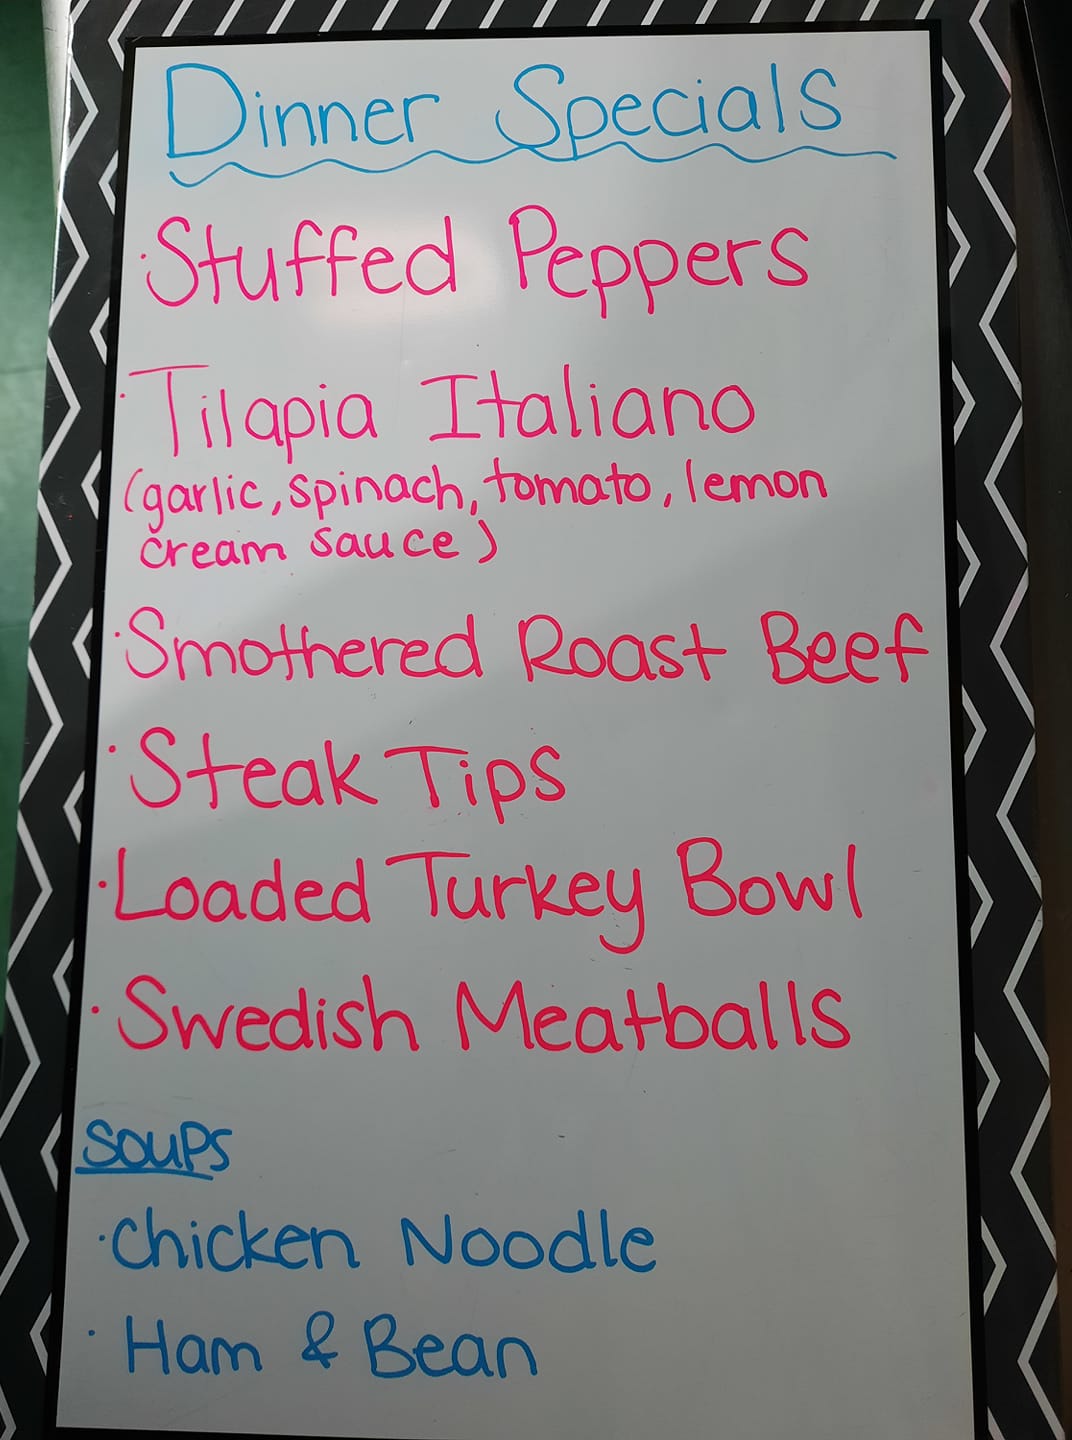 Dinner Specials
·Stuffed Peppers
·Tilapia Italiano
(garlic, spinach, tomato, lemon
cream sauce)
·Smothered Roast Beef
·Steak Tips
·Loaded Turkey Bowl
·Swedish Meatballs
SOUPS
·Chicken Noodle
·Ham & Bean